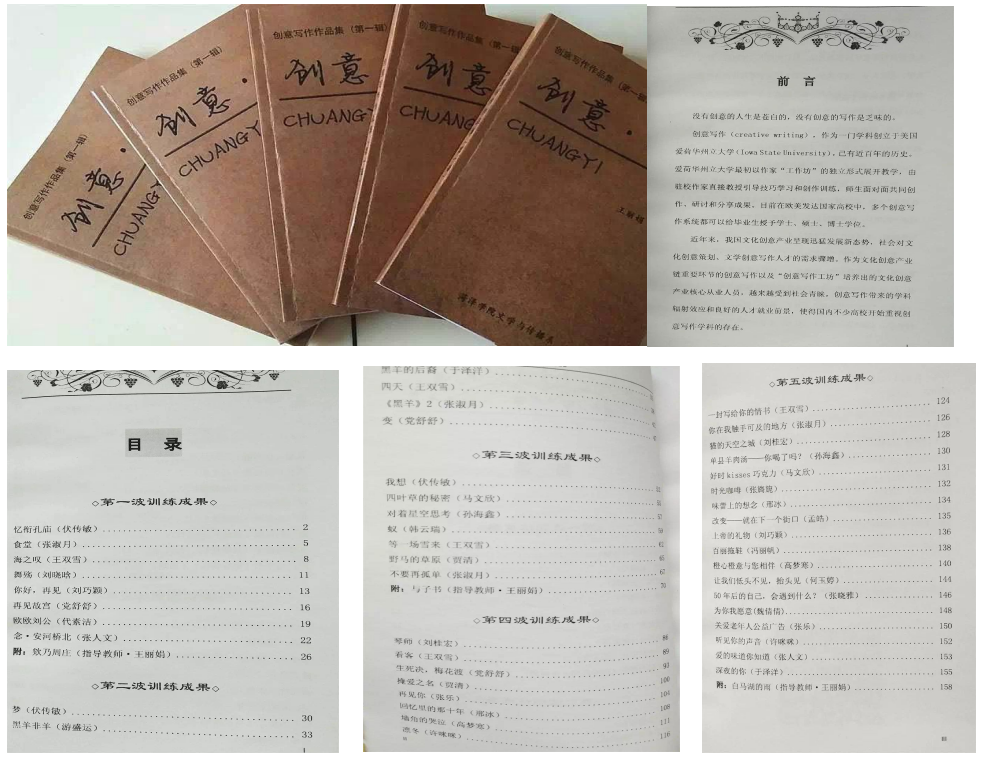 创意写作作品集(第一辑)
创意·
CHUANGYI
创意写作作品集(第一辑)
创意·
CHUANGYI
创意写作作品集(第一辑)
创意
CHUANGYI
创意写作作品集(第一辑)
创意
CHUANGYI
创意写作作品集(第一辑)
创意·
CHUANGYI
菏泽学院文学与传播系
前 言
没有创意的人生是苍白的,没有创意的写作是乏味的。
创意写作(creative writing),作为一门学科创立于美国
爱荷华州立大学(Iowa State University),已有近百年的历史。
爱荷华州立大学最初以作家“工作坊”的独立形式展开教学,由
驻校作家直接教授引导技巧学习和创作训练,师生面对面共同创
作、研讨和分享成果。目前在欧美发达国家高校中,多个创意写
作系统都可以给毕业生授予学士、硕士、博士学位。
近年来,我国文化创意产业呈现迅猛发展新态势,社会对文
化创意策划、文学创意写作人才的需求骤增。作为文化创意产业
链重要环节的创意写作以及“创意写作工坊”培养出的文化创意
产业核心从业人员,越来越受到社会青睐。创意写作带来的学科
辐射效应和良好的人才就业前景,使得国内不少高校开始重视创
意写作学科的存在。
目 录
◇第一波训练成果◇
忆衔孔庙(伏传敏) 2
食堂(张淑月) 5
海之叹(王双雪) 8
舞殇(刘晓晗) 11
你好,再见(刘巧颖) 13
再见故宫(党舒舒) 16
欧欧刘公(代素洁) 19
念·安河桥北(张人文) 22
附:欸乃周庄(指导教师·王丽娟) 26
◇第二波训练成果◇
梦(伏传敏) 30
黑羊非羊(游盛运) 33
黑羊的后裔(于泽洋)
四天(王双雪)
《黑羊》2(张淑月)
变(党舒舒)
◇第三波训练成果◇
我想(伏传敏)
四叶草的秘密(马文欣)
对着星空思考(孙海鑫)
蚁(韩云瑞)
等一场雪来(王双雪)
野马的草原(贾清) 65
不要再孤单(张淑月) 67
附:与子书(指导教师·王丽娟) 70
◇第四波训练成果◇
琴师(刘桂宏) 88
看客(王双雪) 89
生死决,梅花渡(党舒舒) 93
掩爱之名(贾清) 100
再见你(张乐) 104
回忆里的那十年(邢冰) 108
墙角的哭泣(高梦寒) 111
渡冬(许咪咪) 116
◇第五波训练成果◇
一封写给你的情书(王双雪) 124
你在我触手可及的地方(张淑月) 126
猫的天空之城(刘桂宏) 128
单县羊肉汤——你喝了吗?(孙海鑫) 130
好时kisses巧克力(马文欣) 131
时光咖啡(张旖旎) 132
味蕾上的想念(邢冰) 134
改变——就在下一个街口(孟皓) 135
上帝的礼物(刘巧颖) 136
百丽拖鞋(冯丽帆) 138
橙心橙意与您相伴(高梦寒) 140
让我们低头不见,抬头见(何玉婷) 144
50年后的自己,会遇到什么?(张晓雅) 146
为你我愿意(魏倩倩) 148
关爱老年人公益广告(张乐) 150
听见你的声音(许咪咪) 152
爱的味道你知道(张人文) 153
深夜的你(于泽洋) 155
附:白马湖的雨(指导教师·王丽娟) 158